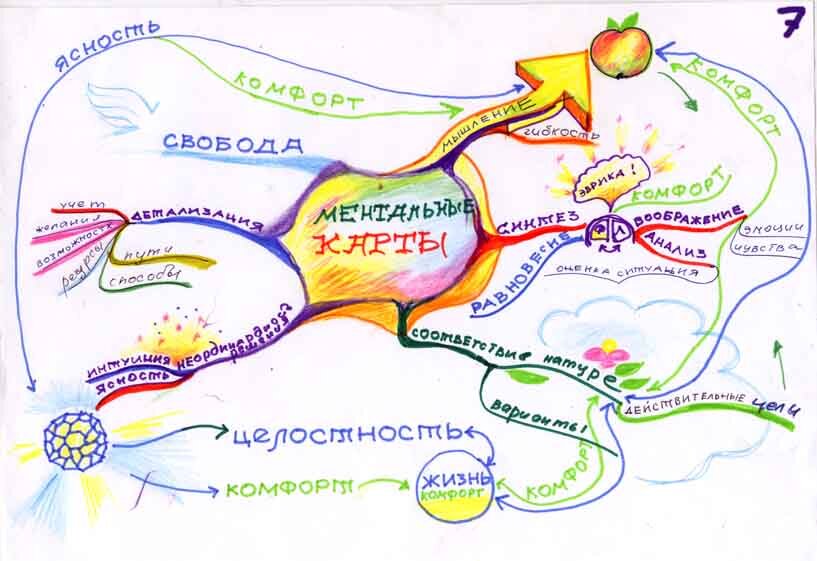 7
ЯСНОСТЬ
КОМФОРТ
КОМФОРТ
МЫШЛЕНИЕ
ГИБКОСТЬ
СВОБОДА
ЭВРИКА!
КОМФОРТ
МЕНТАЛЬНЫЕ
КАРТЫ
СИНТЕЗ
ВООБРАЖЕНИЕ
АНАЛИЗ
ЭМОЦИИ
ЧУВСТВА
РАВНОВЕСИЕ
ОЦЕНКА СИТУАЦИЯ
УЧЕТ
ЖЕЛАНИЯ
ВОЗМОЖНОСТЬ
РЕСУРСЫ
ДЕТАЛИЗАЦИЯ
ПУТИ
СПОСОБЫ
ИНТУИЦИЯ
ЯСНОСТЬ
СООТВЕТСТВИЕ НАТУРЕ
ВАРИАНТЫ
ДЕЙСТВИТЕЛЬНЫЕ ЦЕЛИ
ЦЕЛОСТНОСТЬ
КОМФОРТ
ЖИЗНЬ
КОМФОРТ
КОМФОРТ